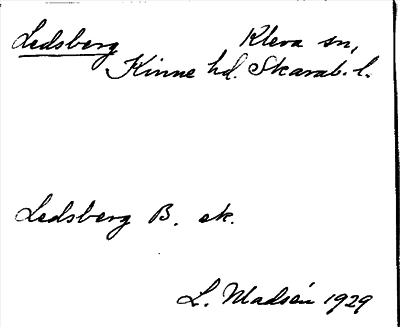 Ledsberg Kleva sn,
Kinne hd. Skarab. l.
Ledsberg B. ek.
L. Madsén 1929